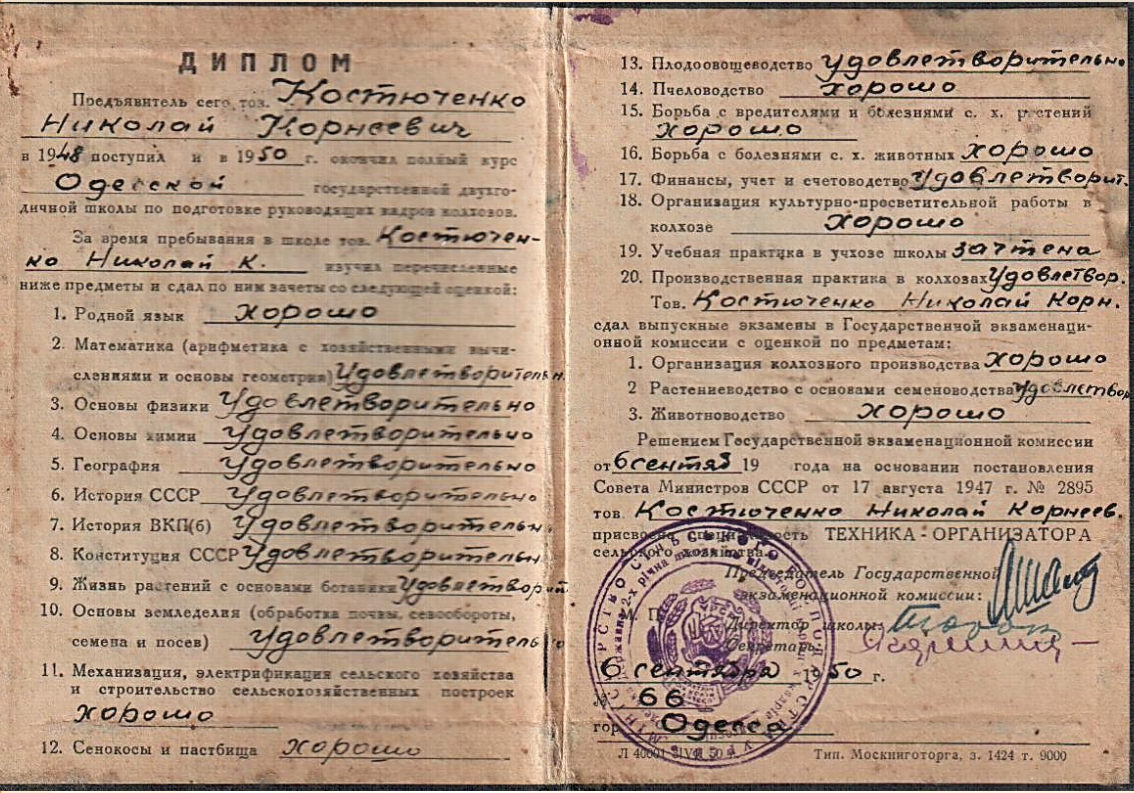 ДИПЛОМ
Предъявитель сего тов. Костюченко
Николай Корнеевич
в 1948 поступил и в 1950 г. окончил полный курс
Одесской государственной двухго-
дичной школы по подготовке руководящих кадров колхозов.
За время пребывания в школе тов. Костючен-
ко Николай К. изучил перечисленные
ниже предметы и сдал по ним зачеты со следующей оценкой:
1. Родной язык хорошо
2. Математика (арифметика с хозяйственными вычи-
слениями и основы геометрии) Удовлетворительн.
3. Основы физики Удовлетворительно
4. Основы химии Удовлетворительно
5. География Удовлетворительно
6. История СССР Удовлетворительно
7. История ВКП(б) Удовлетворительн.
8. Конституция СССР Удовлетворительн.
9. Жизнь растений с основами ботаники Удовлетворит
10. Основы земледелия (обработка почвы, севообороты,
семена и посев) Удовлетворительно
11. Механизация, электрификация сельского хозяйства
и строительство сельскохозяйственных построек
хорошо
12. Сенокосы и пастбища хорошо
13. Плодоовощеводство удовлетворительно
14. Пчеловодство хорошо
15. Борьба с вредителями и болезнями с. х. растений
хорошо
16. Борьба с болезнями с. х. животных хорошо
17. Финансы, учет и счетоводство Удовлетворит.
18. Организация культурно-просветительной работы в
колхозе хорошо
19. Учебная практика в учхозе школы зачтена
20. Производственная практика в колхозах Удовлетвор.
Тов. Костюченко Николай Корн.
сдал выпускные экзамены в Государственной экзаменаци-
онной комиссии с оценкой по предметам:
1. Организация колхозного производства хорошо
2 Растениеводство с основами семеноводства удовлетвор
3. Животноводство хорошо
Решением Государственной экзаменационной комиссии
от 6 сентяб 19 года на основании постановления
Совета Министров СССР от 17 августа 1947 г. № 2895
тов. Костюченко Николай Корнеев.
присвоена специальность ТЕХНИКА - ОРГАНИЗАТОРА
сельского хозяйства.
Председатель Государственной
экзаменационной комиссии:
М. П. Директор школы:
Секретарь
6 сентября 1950 г.
№ 66
гор Одесса
Л 40001 50 Тип. Москниготорга, з. 1424 т. 9000